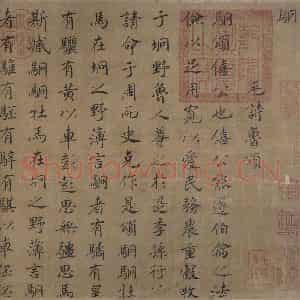 駉
毛詩魯頌
駉頌僖公也僖公能遵伯禽之法
儉以足用寬以愛民務農重穀牧
于坰野魯人尊之於是季孫行父
請命于周而史克作是頌駉駉牡
馬在坰之野薄言駉者有驈有皇
有驪有黃以車彭彭思無疆思馬
斯臧駉駉牡馬在坰之野薄言駉
者有騅有駓有騂有騏以車伾伾